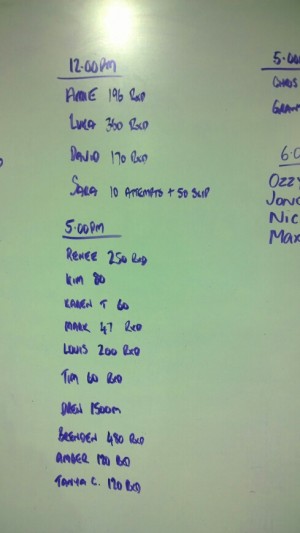 12.00PM
AMIE 196 RXD
LUKA 360 RXD
DAVID 170 RXD
SARA 10 ATTEMPTS + 50 SKIP
5.00PM
RENEE 250 RXD
KIM 80
KAREN T 60
MARK 47 RXD
LOUIS 200 RXD
TIM 60 RXD
DREN 1500M
BRENDEN 480 RXD
AMBER 120
TANYA C. 120 RXD
5.0
CHRIS
GRAN
6.0
OZZY
NIC
MAX